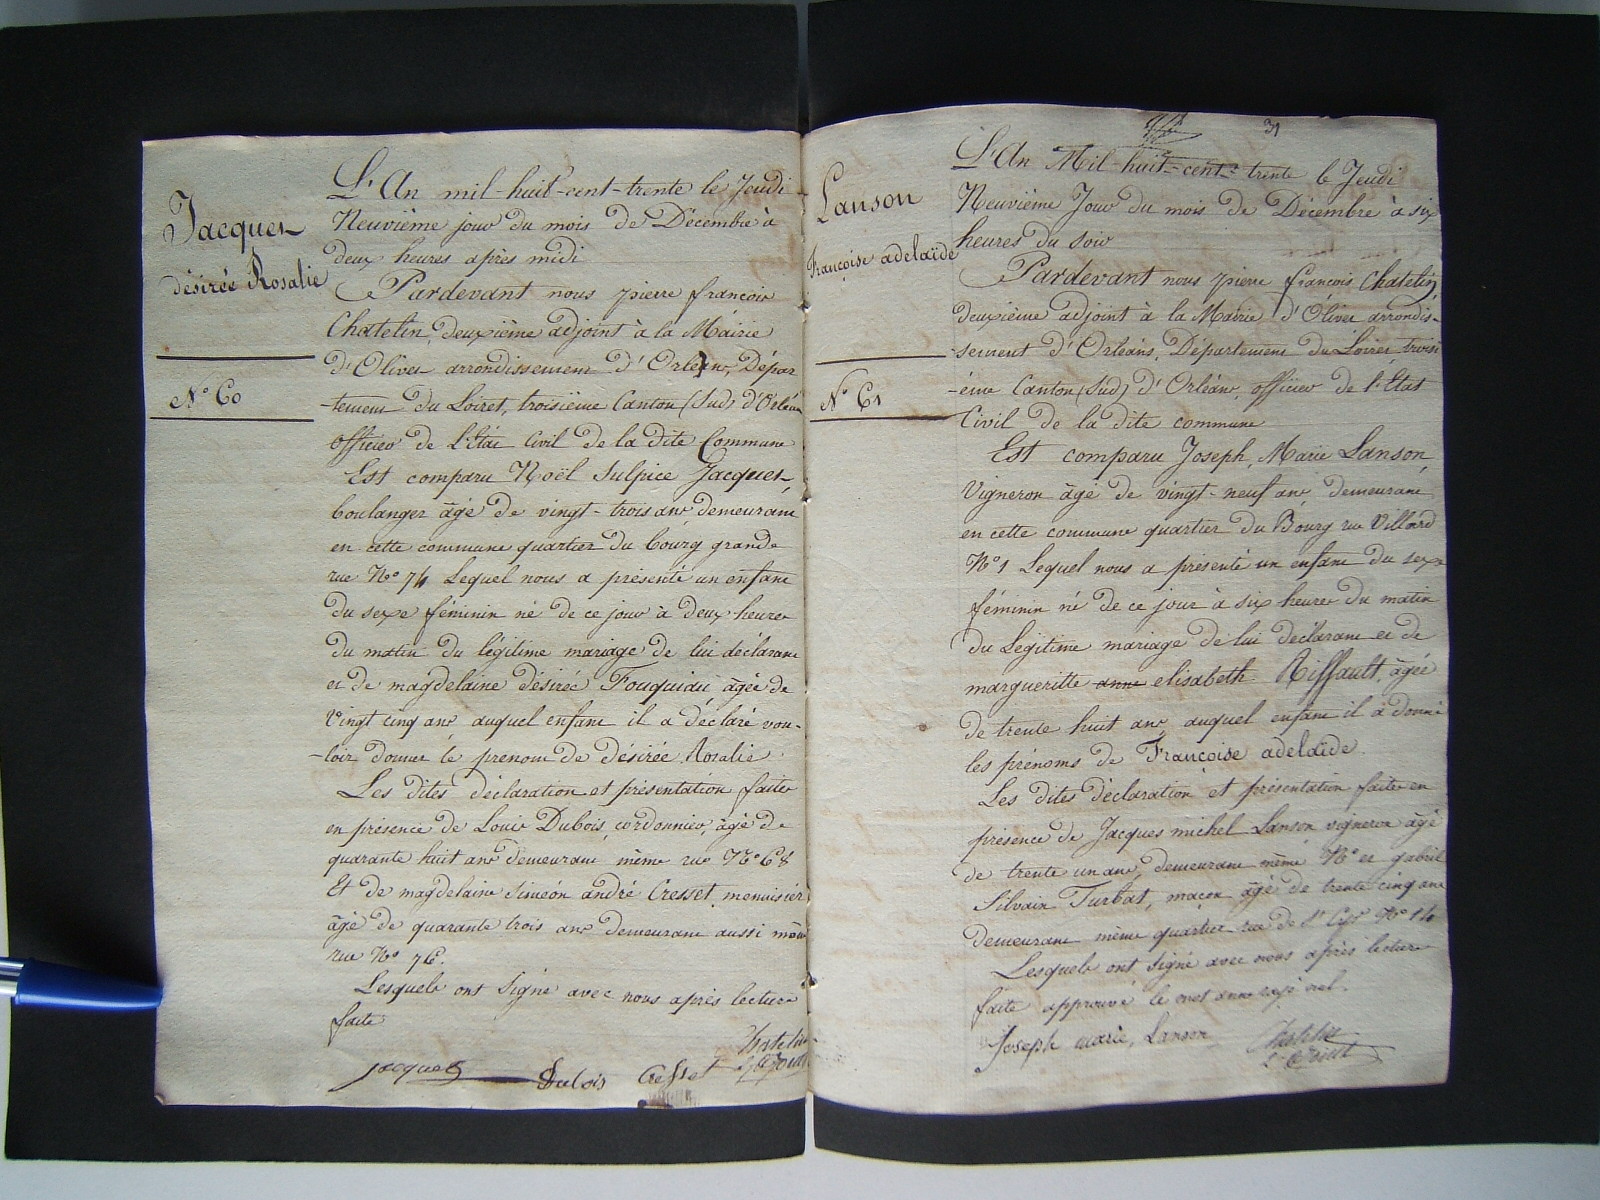 Jacques
désirée Rosalie
N° 60
L'An mil-huit-cent-trente le Jeudi
Neuvième jour du mois de Décembre à
deux heures après midi
Pardevant nous pierre françois
Chatelin, deuxième adjoint à la Mairie
d'Olivet arrondissement d'Orléans, Dépar
-tement du Loiret, troisième Canton (Sud) d'Orléans
officier de l'État Civil de la dite Commune
Est comparu Noël Sulpice Jacques,
boulanger âgé de vingt-trois ans demeurant
en cette commune quartier du bourg grande
rue N° 74 Lequel nous a présenté un enfant
du sexe féminin né de ce jour à deux heures
du matin du légitime mariage de lui déclarant
et de magdelaine désirée Fouquiau âgée de
vingt cinq ans auquel enfant il a déclaré vou-
-loir donner le prénom de désirée Rosalie.
Les dites déclaration et présentation faites
en présence de Louis Dubois, cordonnier, âgé de
quarante huit ans demeurant même rue N° 68
Et de magdelaine Siméon andré Cresset menuisier
âgé de quarante trois ans demeurant aussi même
rue N° 76.
Lesquels ont Signé avec nous après lecture
faite
Chatelin
jacques Dubois Cresset
31
Lanson
Françoise adelaïde
N° 61
L'An Mil-huit-cent-trente le Jeudi
Neuvième Jour du mois de Décembre à six
heures du soir
Pardevant nous pierre françois Chatelin,
deuxième adjoint à la Mairie d'Olivet arrondis-
-sement d'Orléans, Département du Loiret troisi
-ème Canton (Sud) d'Orléans, officier de l'Etat
Civil de la dite commune
Est comparu Joseph, Marie Lanson,
Vigneron âgé de vingt-neuf ans demeurant
en cette commune quartier du Bourg rue Villard
N° 1 Lequel nous a présenté un enfant du sexe
féminin né de ce jour à six heures du matin
du Légitime mariage de lui déclarant et de
margueritte anne elisabeth Riffault, âgée
de trente huit ans auquel enfant il a donné
les prénoms de Françoise adelaïde.
Les dites déclaration et présentation faites en
présence de Jacques michel Lanson vigneron âgé
de trente un ans, demeurant même N° et gabriel
Silvain Turbat, maçon âgé de trente cinq ans
demeurant même quartier rue de St Cyr N° 14
Lesquels ont Signé avec nous après lecture
faite approuvé le mot anne rayé nul.
Joseph marie, Lanson Chatelin